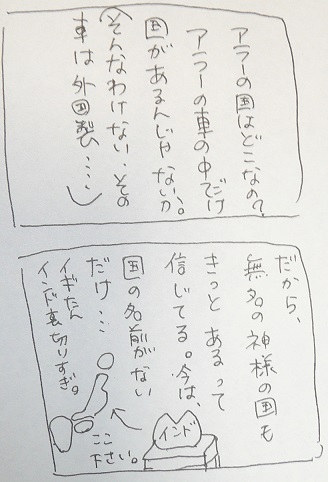 アラーの国はどこなの？
アラーの車の中でだけ
国があるんじゃないか。
（そんなわけない、その
車は外国製……）
だから、
無名の神様の国も
きっとあるって
信じてる。今は、
国の名前がない
だけ…
イギたん
インド裏切りすぎ。
ここ
下さい。
インド